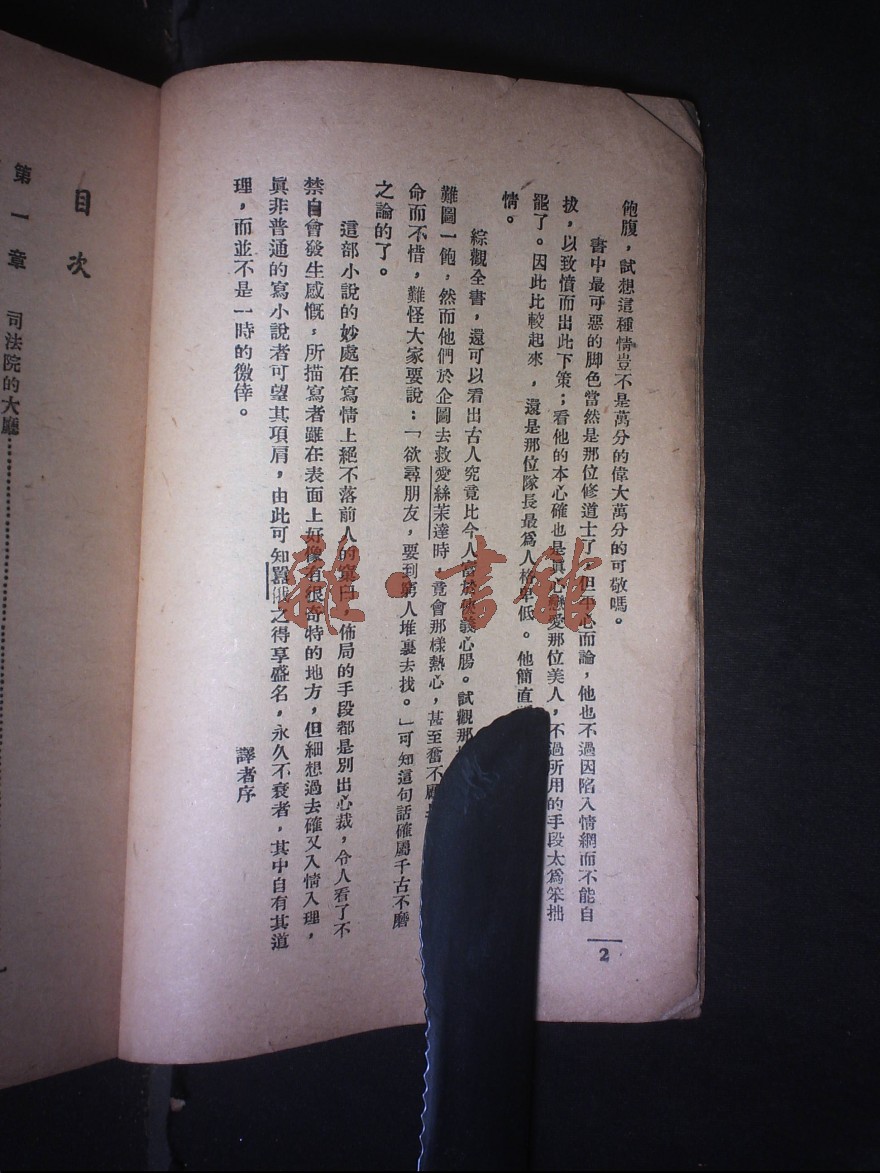 飽腹，試想這種情豈不是萬分的偉大萬分的可敬嗎。
書中最可惡的脚色當然是那位修道士了，但平心而論，他也不過因陷入情網而不能自
拔，以致憤而出此下策；看他的本心確也是眞心戀愛那位美人，不過所用的手段太爲笨拙
罷了。因此比較起來，還是那位隊長最爲人格卑低。他簡直
情。
綜觀全書，還可以看出古人究竟比今人富於俠義心腸。試觀那
難圖一飽，然而他們於企圖去救愛絲茉達時，竟會那樣熱心，甚至奮不顧
命而不惜，難怪大家要說：「欲尋朋友，要到窮人堆裏去找。」可知這句話確屬千古不磨
之論的了。
這部小說的妙處在寫情上絕不落前人的窠臼，佈局的手段都是別出心裁，令人看了不
禁自會發生感慨，所描寫者雖在表面上好像有很奇特的地方，但細想過去確又入情入理，
眞非普通的寫小說者可望其項肩，由此可知囂俄之得享盛名，永久不衰者，其中自有其道
理，而並不是一時的徼倖。
譯者序
2
目次
第一章　司法院的大廳
雜·書館